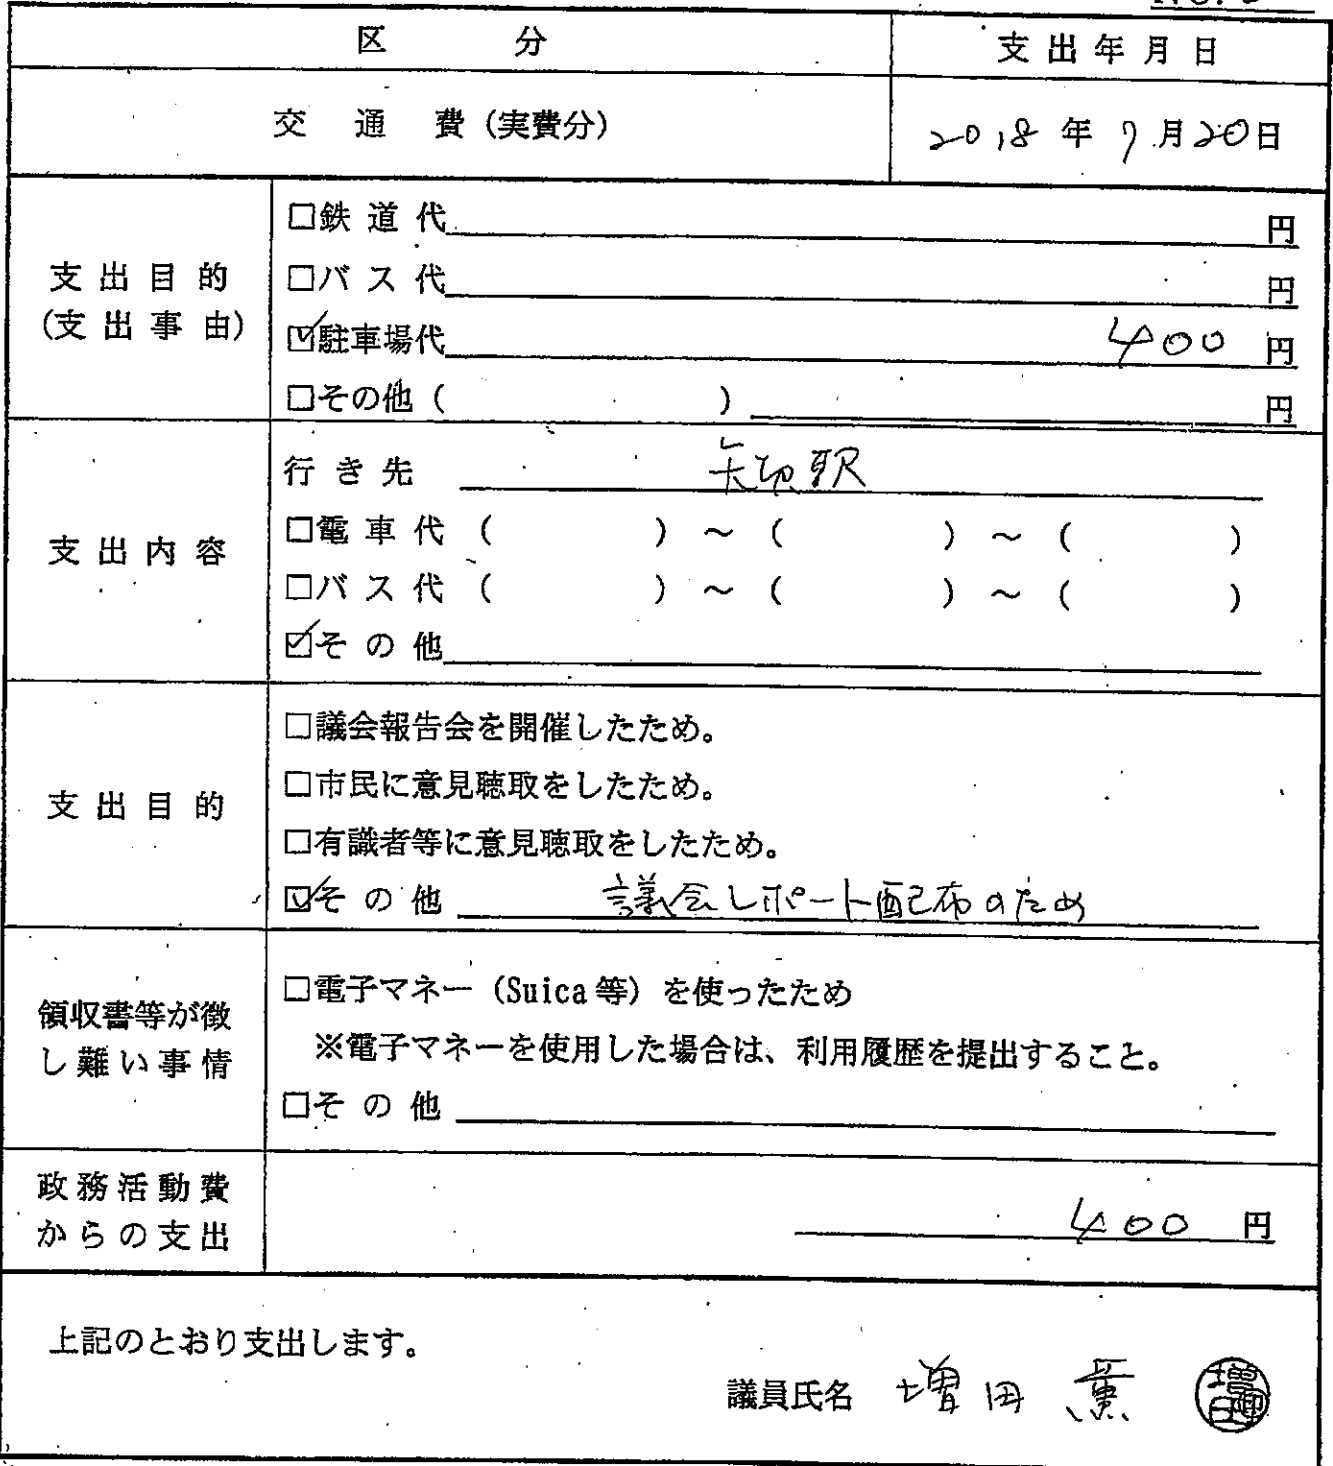 区 分 支出年月日
交 通 費（実費分） 2018年 7月20日
支出目的
（支出事由）
□鉄道代 円
□バス代 円
☑駐車場代 400 円
□その他（ ） 円
支出内容
行き先 矢切駅
□電車代（ ）～（ ）～（ ）
□バス代（ ）～（ ）～（ ）
☑その他
支出目的
□議会報告会を開催したため。
□市民に意見聴取をしたため。
□有識者等に意見聴取をしたため。
☑その他 議会レポート配布のため
領収書等が徴
し難い事情
□電子マネー（Suica等）を使ったため
※電子マネーを使用した場合は、利用履歴を提出すること。
□その他
政務活動費
からの支出
400 円
上記のとおり支出します。
議員氏名 増田 薫